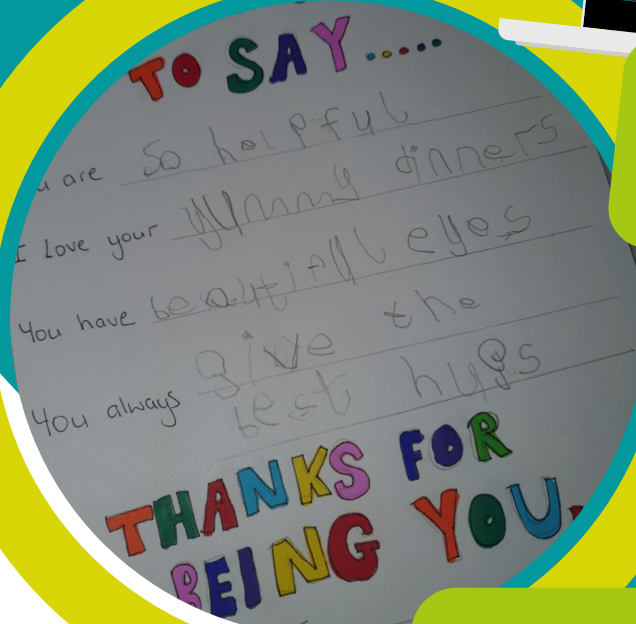 TO SAY.....
u are so helpful
I love your yummy dinners
You have beautifull eyes
You always give the
best hugs
THANKS FOR
BEING YOU.